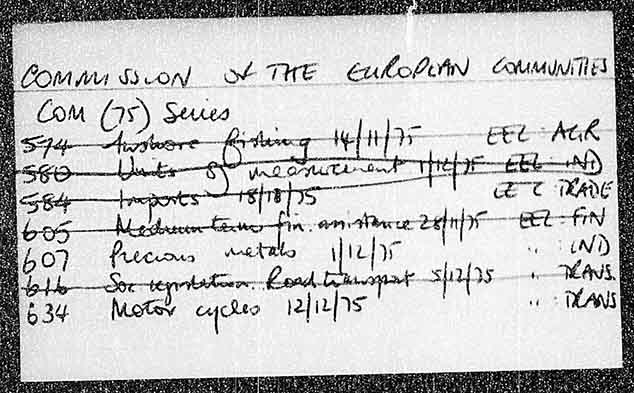 COMMISSION of THE EUROPEAN COMMUNITIES
COM (75) Series
574 Inshore fishing 14/11/75 EEC: AGR
580 Units of measurement 1/12/75 EEC: IND
584 Imports 18/18/75 EEC TRADE
605 Medium term fin. assistance 28/11/75 EEC: FIN
607 Precious metals 1/12/75 " : IND
616 Soc legislation. Road transport 5/12/75 " : TRANS.
634 Motor cycles 12/12/75 " : TRANS